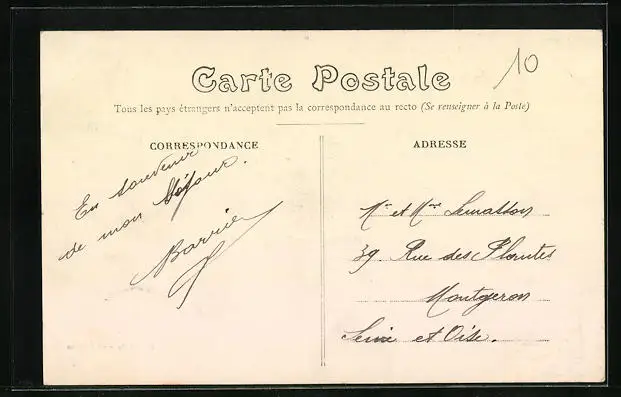 10
Carte Postale
Tous les pays étrangers n'acceptent pas la correspondance au recto (Se renseigner à la Poste)
CORRESPONDANCE
En souvenir
de mon Séjour.
Barrier
ADRESSE
Mr et Mme Lemasson
39. Rue des Plantes
Montgeron
Seine et Oise.